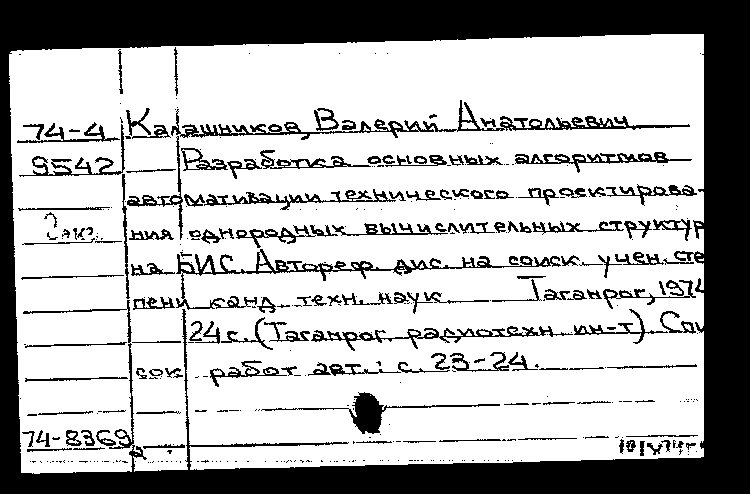 74-4 Калашников, Валерий Анатольевич.
9542 Разработка основных алгоритмов
автоматизации технического проектирова-
ния однородных вычислительных структур
на БИС. Автореф. дис. на соиск. учен. сте
пени канд. техн. наук. Таганрог, 1974
24 с. (Таганрог. радиотехн. ин-т). Спи
сок работ авт.: с. 23-24.
74-8369